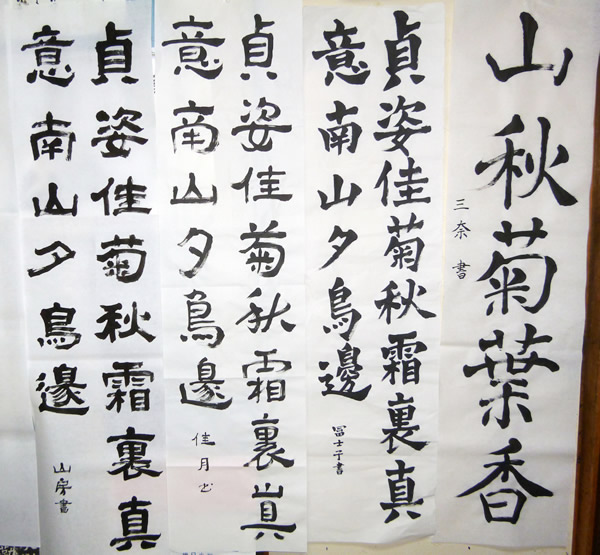 山秋菊葉香
三奈書
貞姿佳菊秋霜裏真
意南山夕鳥邊
冨士子書
貞姿佳菊秋霜裏真
意南山夕鳥邊
佳月書
貞姿佳菊秋霜裏真
意南山夕鳥邊
山房書